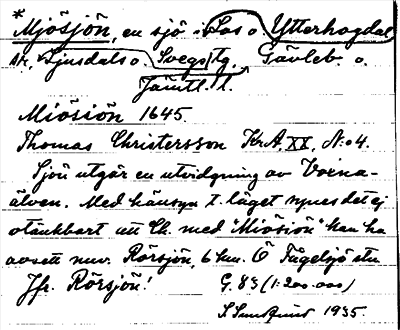 *Mjösjön, en sjö i Los o. Ytterhogdal
sr, Ljusdals o. Svegs tg. Gävleb. o.
Jämtl. l.
Miösiön 1645.
Thomas Christersson KrA, XX, N:o 4.
Sjön utgör en utvidgning av Vorna-
älven. Med hänsyn t. läget synes det ej
otänkbart att Ch. med "Miösiön" kan ha
avsett nuv. Rörsjön, 6 km. Ö Fågelsjö stn
Jfr. Rörsjön! G. 83 (1:200.000)
1935.